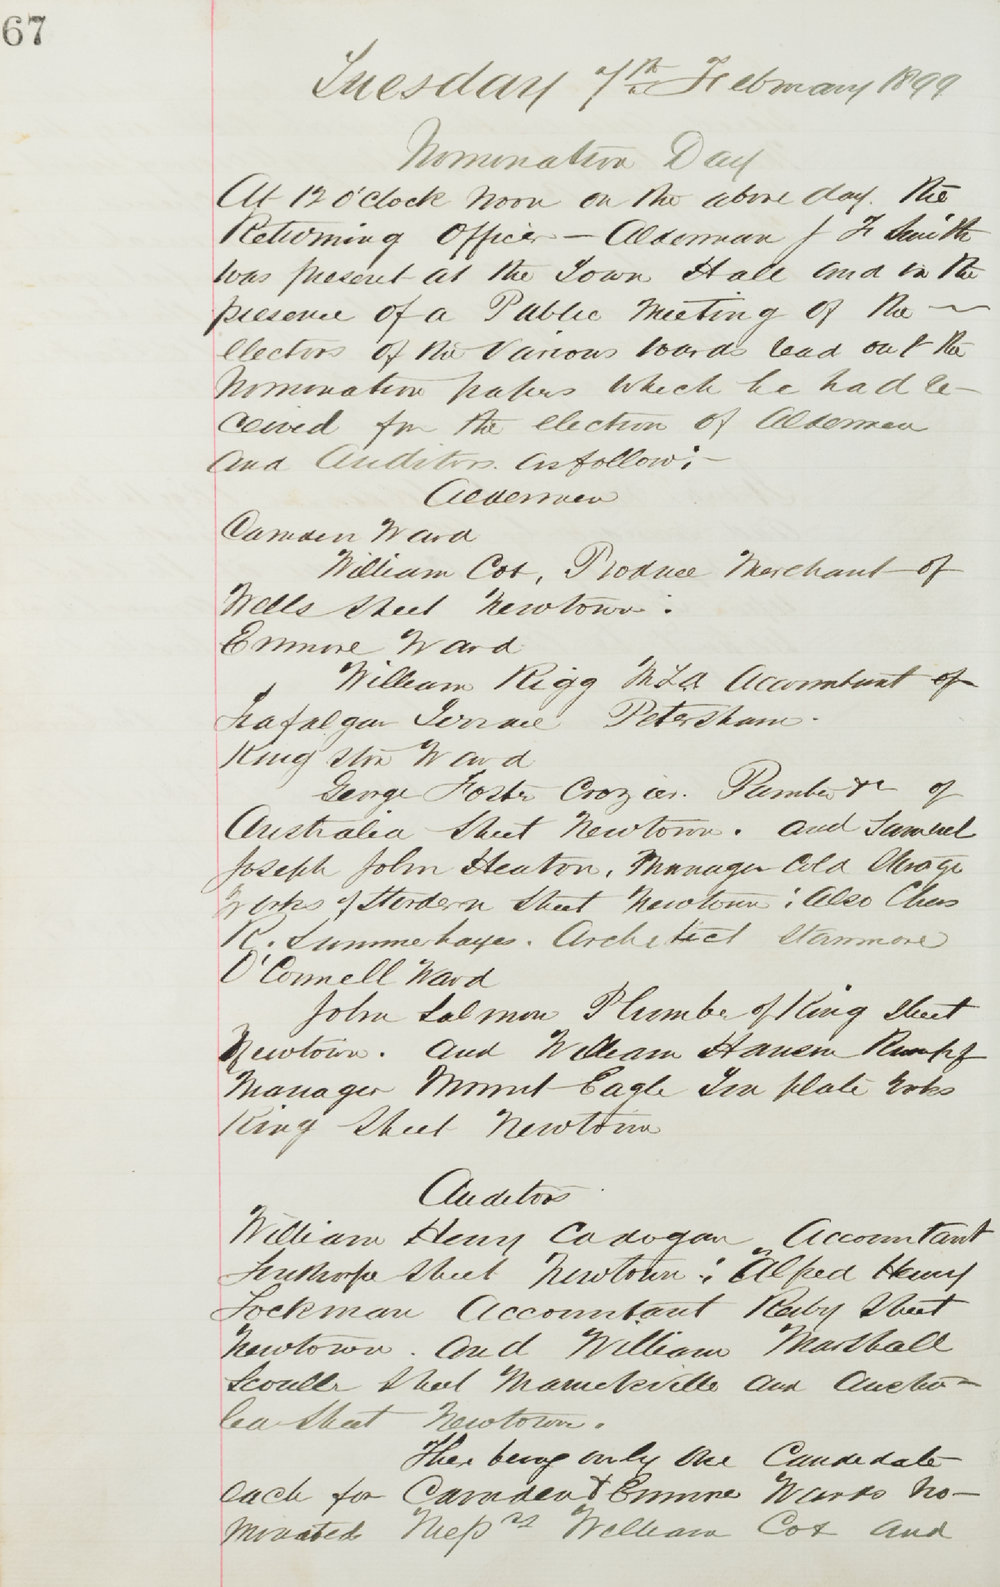 67
Tuesday 7th February 1899
Nomination Day
At 12 o'clock noon on the above day. the
Returning Officer — Alderman J F Smith
was present at the Town Hall and in the
presence of a Public Meeting of the —
electors of the Various wards read out the
Nomination papers which he had re-
ceived for the election of Aldermen
and Auditors. as follow:—
Aldermen
Camden Ward
William Cox, Produce Merchant of
Wells Street Newtown:
Enmore Ward
William Rigg MLA Accountant of
Trafalgar Terrace Petersham.
Kingston Ward
George Foster Crozier. Plumber &c of
Australia Street Newtown. and Samuel
Joseph John Heaton, Manager Cold Storage
Works of Hordern Street Newtown: Also Chas
R. Summerhayes. Architect Stanmore
O'Connell Ward
John Salmon Plumber of King Street
Newtown. and William Hansen Rumpf
Manager Mount Eagle Tin plate works
King Street Newtown
Auditors
William Henry Cadogan Accountant
Street Newtown: Alfred Henry
Lockman Accountant Street
Newtown. and William Marshall
Street Marrickville and Austra-
lia Street Newtown.
Ther being only One Candidate
each for Camden & Enmore Wards no-
minated Messrs William Cox and